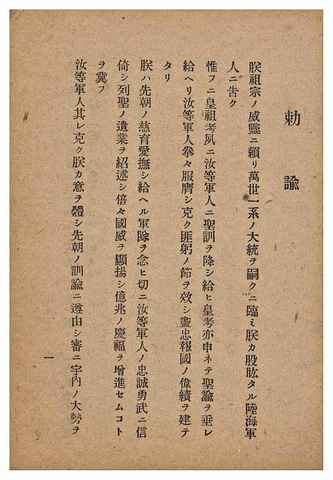 勅諭
朕祖宗ノ威靈ニ頼リ萬世一系ノ大統ヲ嗣クニ臨ミ朕カ股肱タル陸海軍
人ニ告ク
惟フニ皇祖考夙ニ汝等軍人ニ聖訓ヲ降シ給ヒ皇考亦申ネテ聖諭ヲ垂レ
給ヘリ汝等軍人拳々服膺シ克ク匪躬ノ節ヲ效シ盡忠報國ノ偉績ヲ建テ
タリ
朕ハ先朝ノ慈育愛撫シ給ヘル軍隊ヲ念ヒ切ニ汝等軍人ノ忠誠勇武ニ信
倚シ列聖ノ遺業ヲ紹述シ倍々國威ヲ顯揚シ億兆ノ慶福ヲ增進セムコト
ヲ冀フ
汝等軍人其レ克ク朕カ意ヲ體シ先朝ノ訓諭ニ遵由シ審ニ宇內ノ大勢ヲ
一